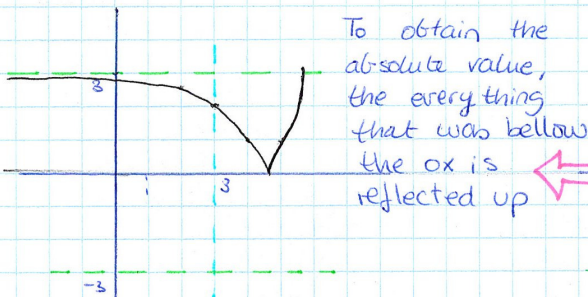 To obtain the
absolute value,
the every thing
that was bellow
the ox is
reflected up
3
1
3
-3